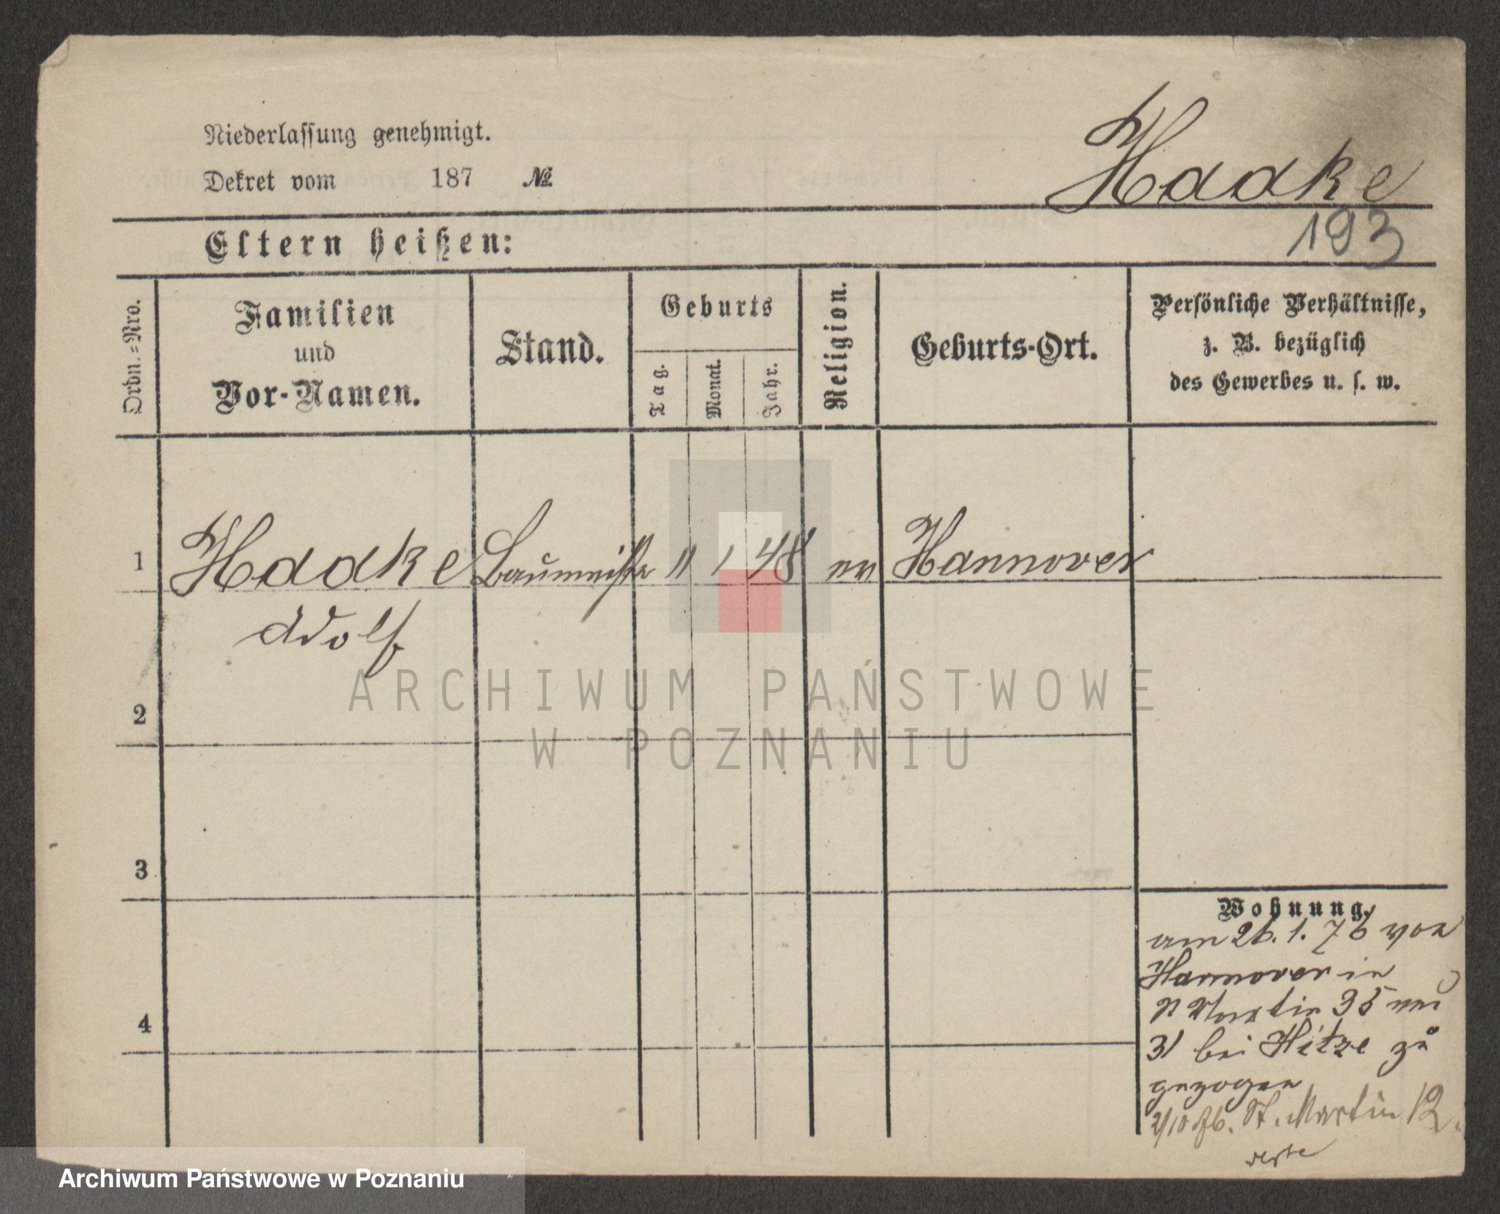 Niederlassung genehmigt.
Dekret vom 187 №
Haake
193
Eltern heißen:
Ordn.=Nro.
Familien
und
Vor-Namen.
Stand.
Geburts
Tag.
Monat.
Jahr.
Religion.
Geburts-Ort.
Persönliche Verhältnisse,
z. B. bezüglich
des Gewerbes u. s. w.
1 Haake Baumeister 11 1 48 ev Hannover
Adolf
2
3
4
Wohnung.
am 26.1.76 von
Hannover in
St Martin 35
31 bei Hitze zu
gezogen
2/10 76. St. Martin 12.
ARCHIWUM PAŃSTWOWE
W POZNANIU
Archiwum Państwowe w Poznaniu